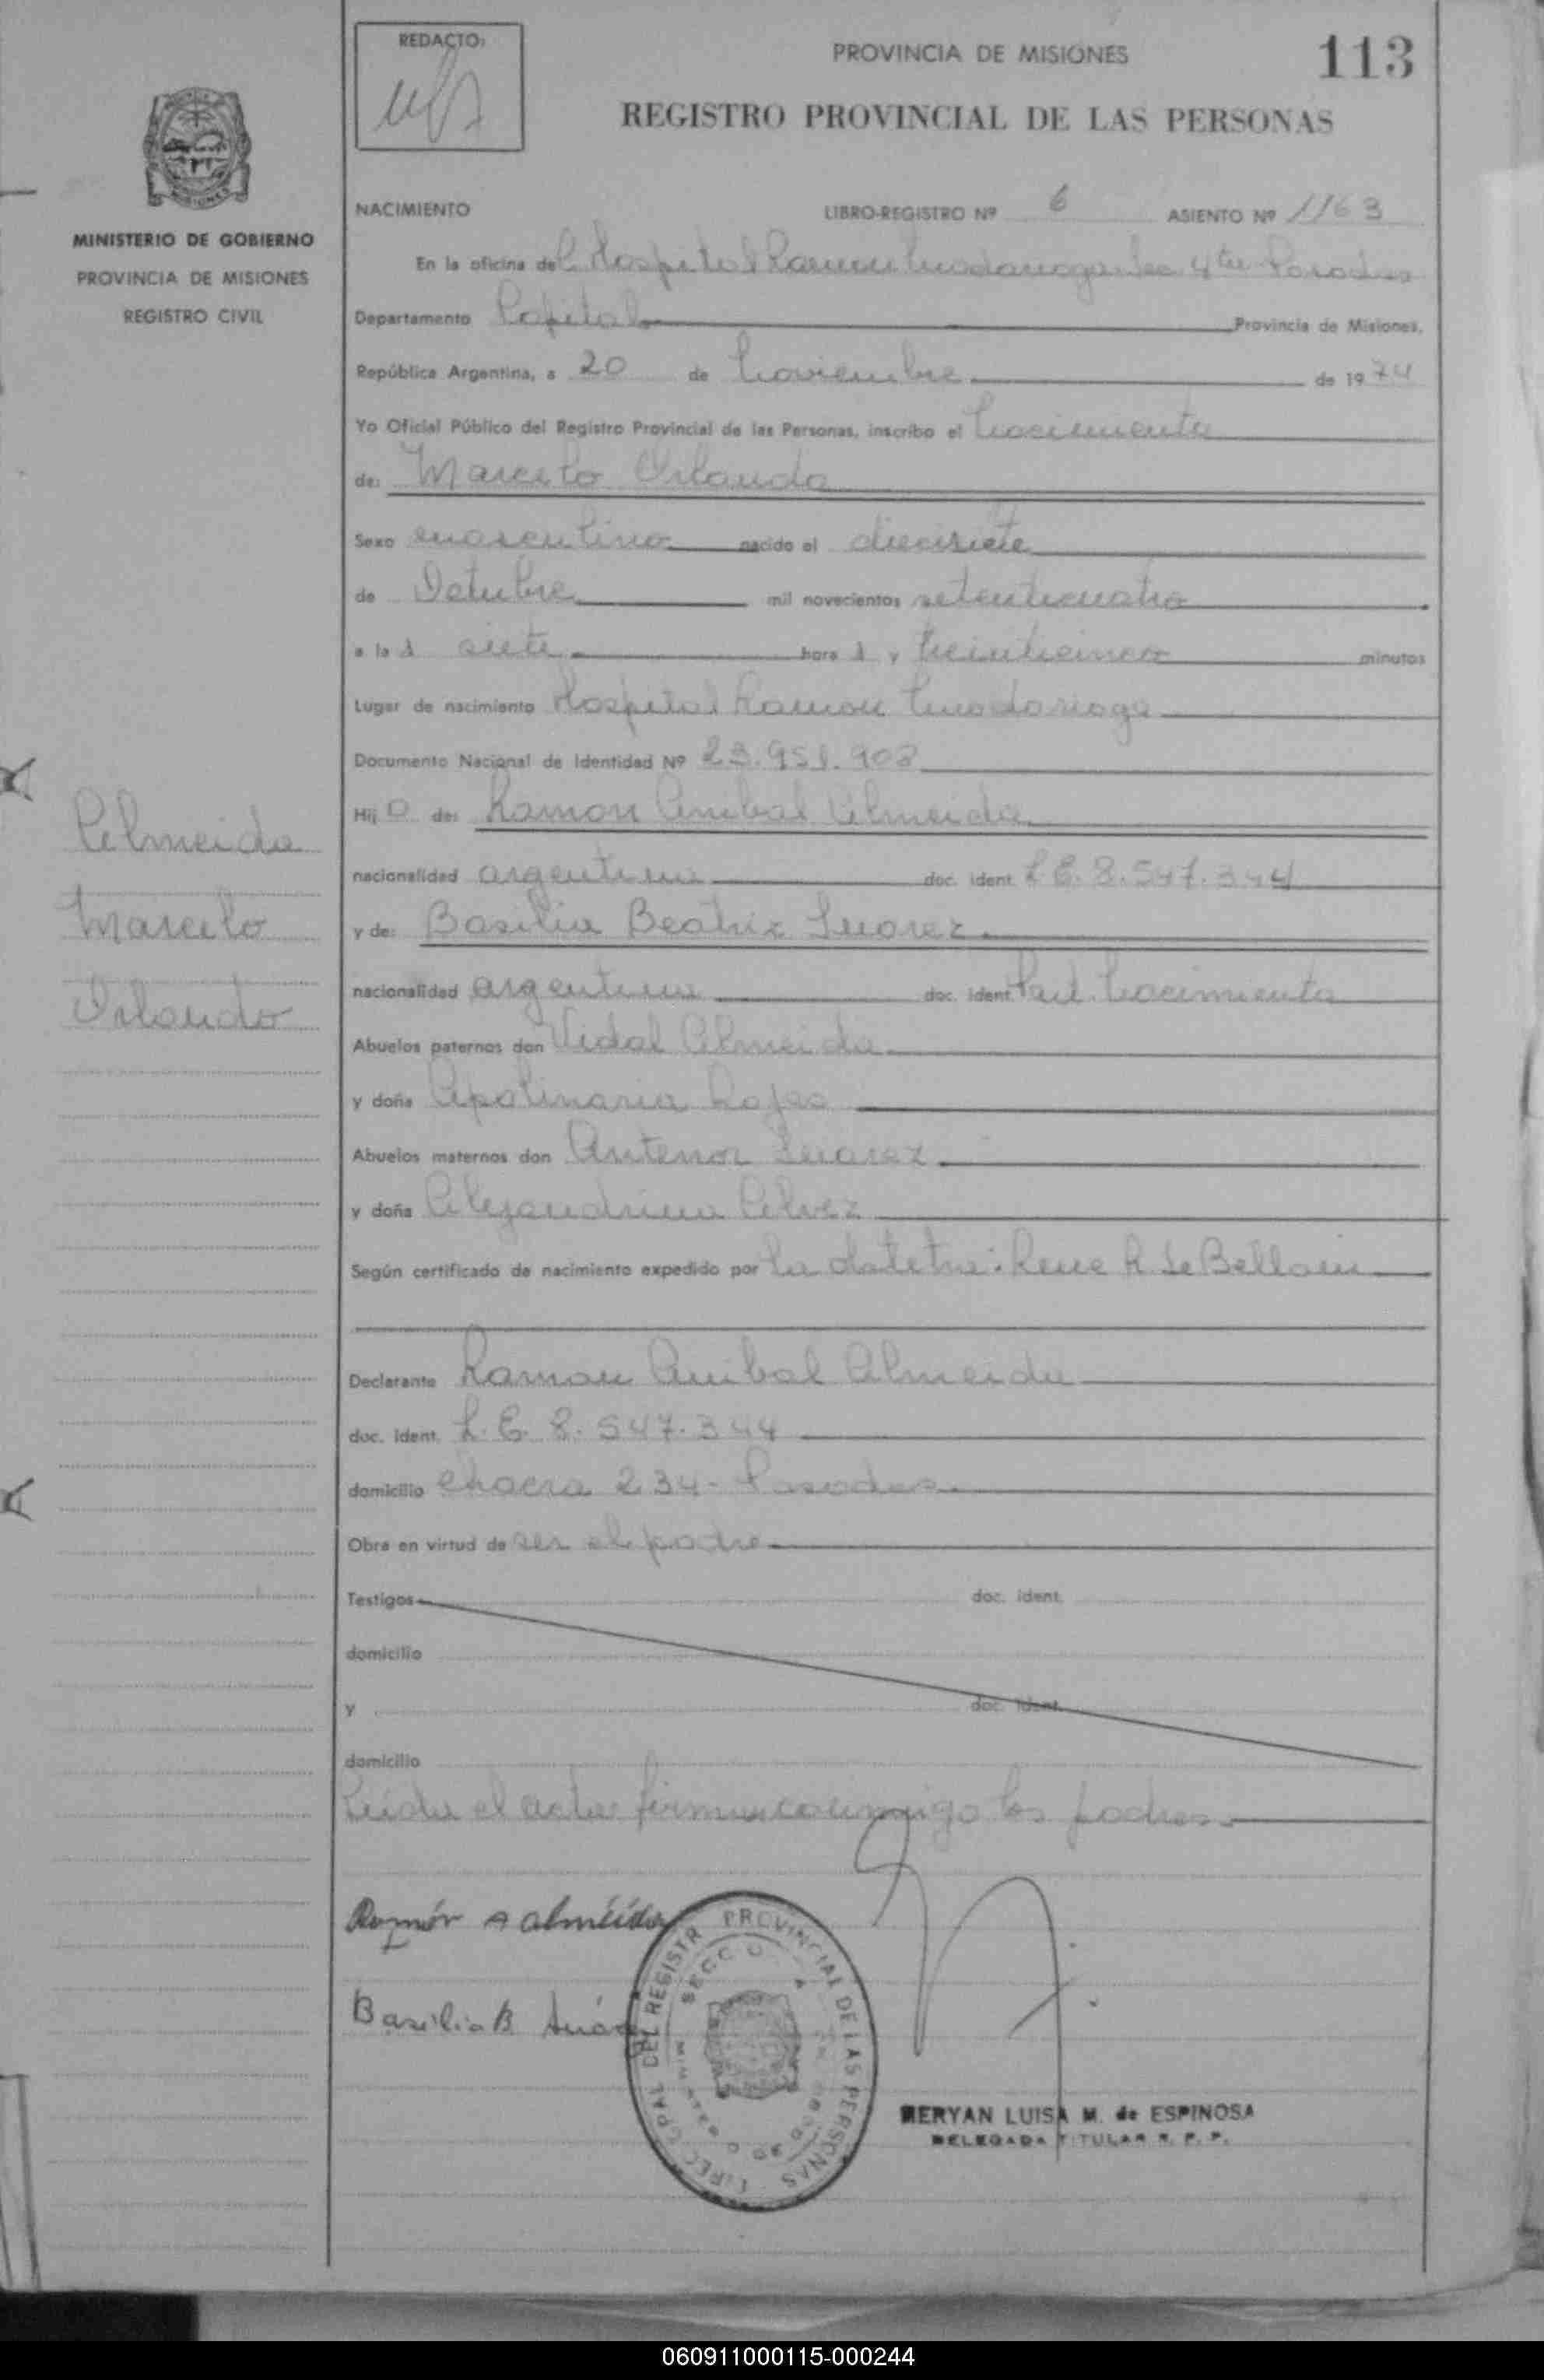 REDACTO:
PROVINCIA DE MISIONES
113
REGISTRO PROVINCIAL DE LAS PERSONAS
MISIONES
MINISTERIO DE GOBIERNO
PROVINCIA DE MISIONES
REGISTRO CIVIL
NACIMIENTO LIBRO-REGISTRO Nº 6 ASIENTO Nº 1163
En la oficina del Hospital Ramon Madariaga Sec 4ta Posadas
Departamento Capital Provincia de Misiones,
República Argentina, a 20 de Noviembre de 1974
Yo Oficial Público del Registro Provincial de las Personas, inscribo el Nacimiento
de: Marcelo Orlando
Sexo masculino nacido el diecisiete
de Octubre mil novecientos setenticuatro
a las siete horas y treinticinco minutos
Lugar de nacimiento Hospital Ramon Madariaga
Documento Nacional de Identidad Nº 23.951.903
Almeida
Marcelo
Orlando
Hijo de: Ramon Anibal Almeida
nacionalidad argentina doc. ident. L E. 8.547.344
y de: Basilia Beatriz Suarez
nacionalidad argentina doc. ident. Part. Nacimiento
Abuelos paternos don Vidal Almeida
y doña Apolinaria Rojas
Abuelos maternos don Antenor Suarez
y doña Alejandrina Alvez
Según certificado de nacimiento expedido por la obstetra: Rene R de Belloni
Declarante Ramon Anibal Almeida
doc. ident. L. E. 8. 547. 344
domicilio chacra 234 - Posadas
Obra en virtud de ser el padre
Testigos doc. ident.
domicilio
y doc. ident.
domicilio
Leida el acta firman conmigo los padres
Ramón A Almeida
Basilia B. Suárez
PROVINCIAL DE LAS PERSONAS
MERYAN LUISA M. de ESPINOSA
DELEGADA TITULAR R. P. P.
060911000115-000244